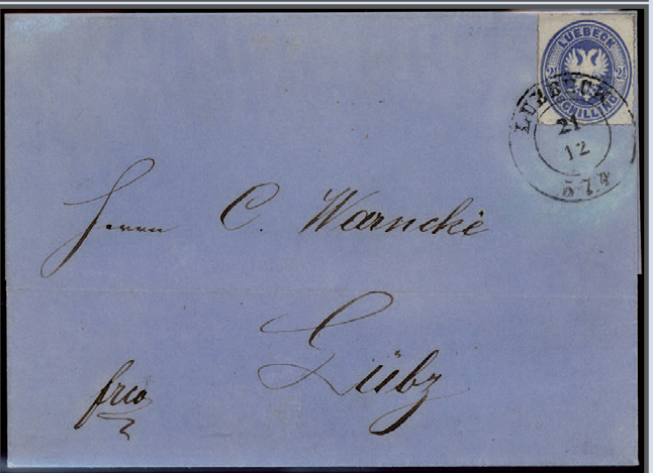 LUEBECK
2½ 2½
SCHILLING
LUEBECK
21
12
5-7.N
Herrn C. Warncke
Lübz
frco